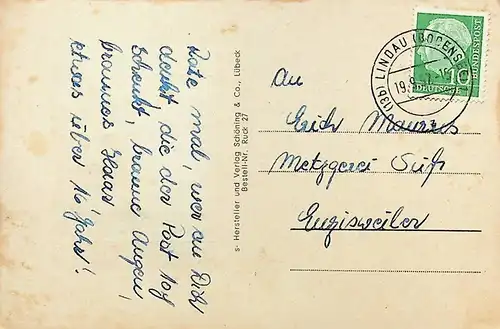 Rate mal, wer an Dich
denkt, die der Post 10 Pf
schenkt, braune Augen,
braunes Haar
etwas über 16 Jahr!
s- Hersteller und Verlag Schöning & Co., Lübeck
Bestell-Nr. Ruck 27
(13b) LINDAU (BODENS
19.9.
10
DEUTSCHE
BUNDESPOST
An
Erich
Metzgerei Süß
Enzisweiler